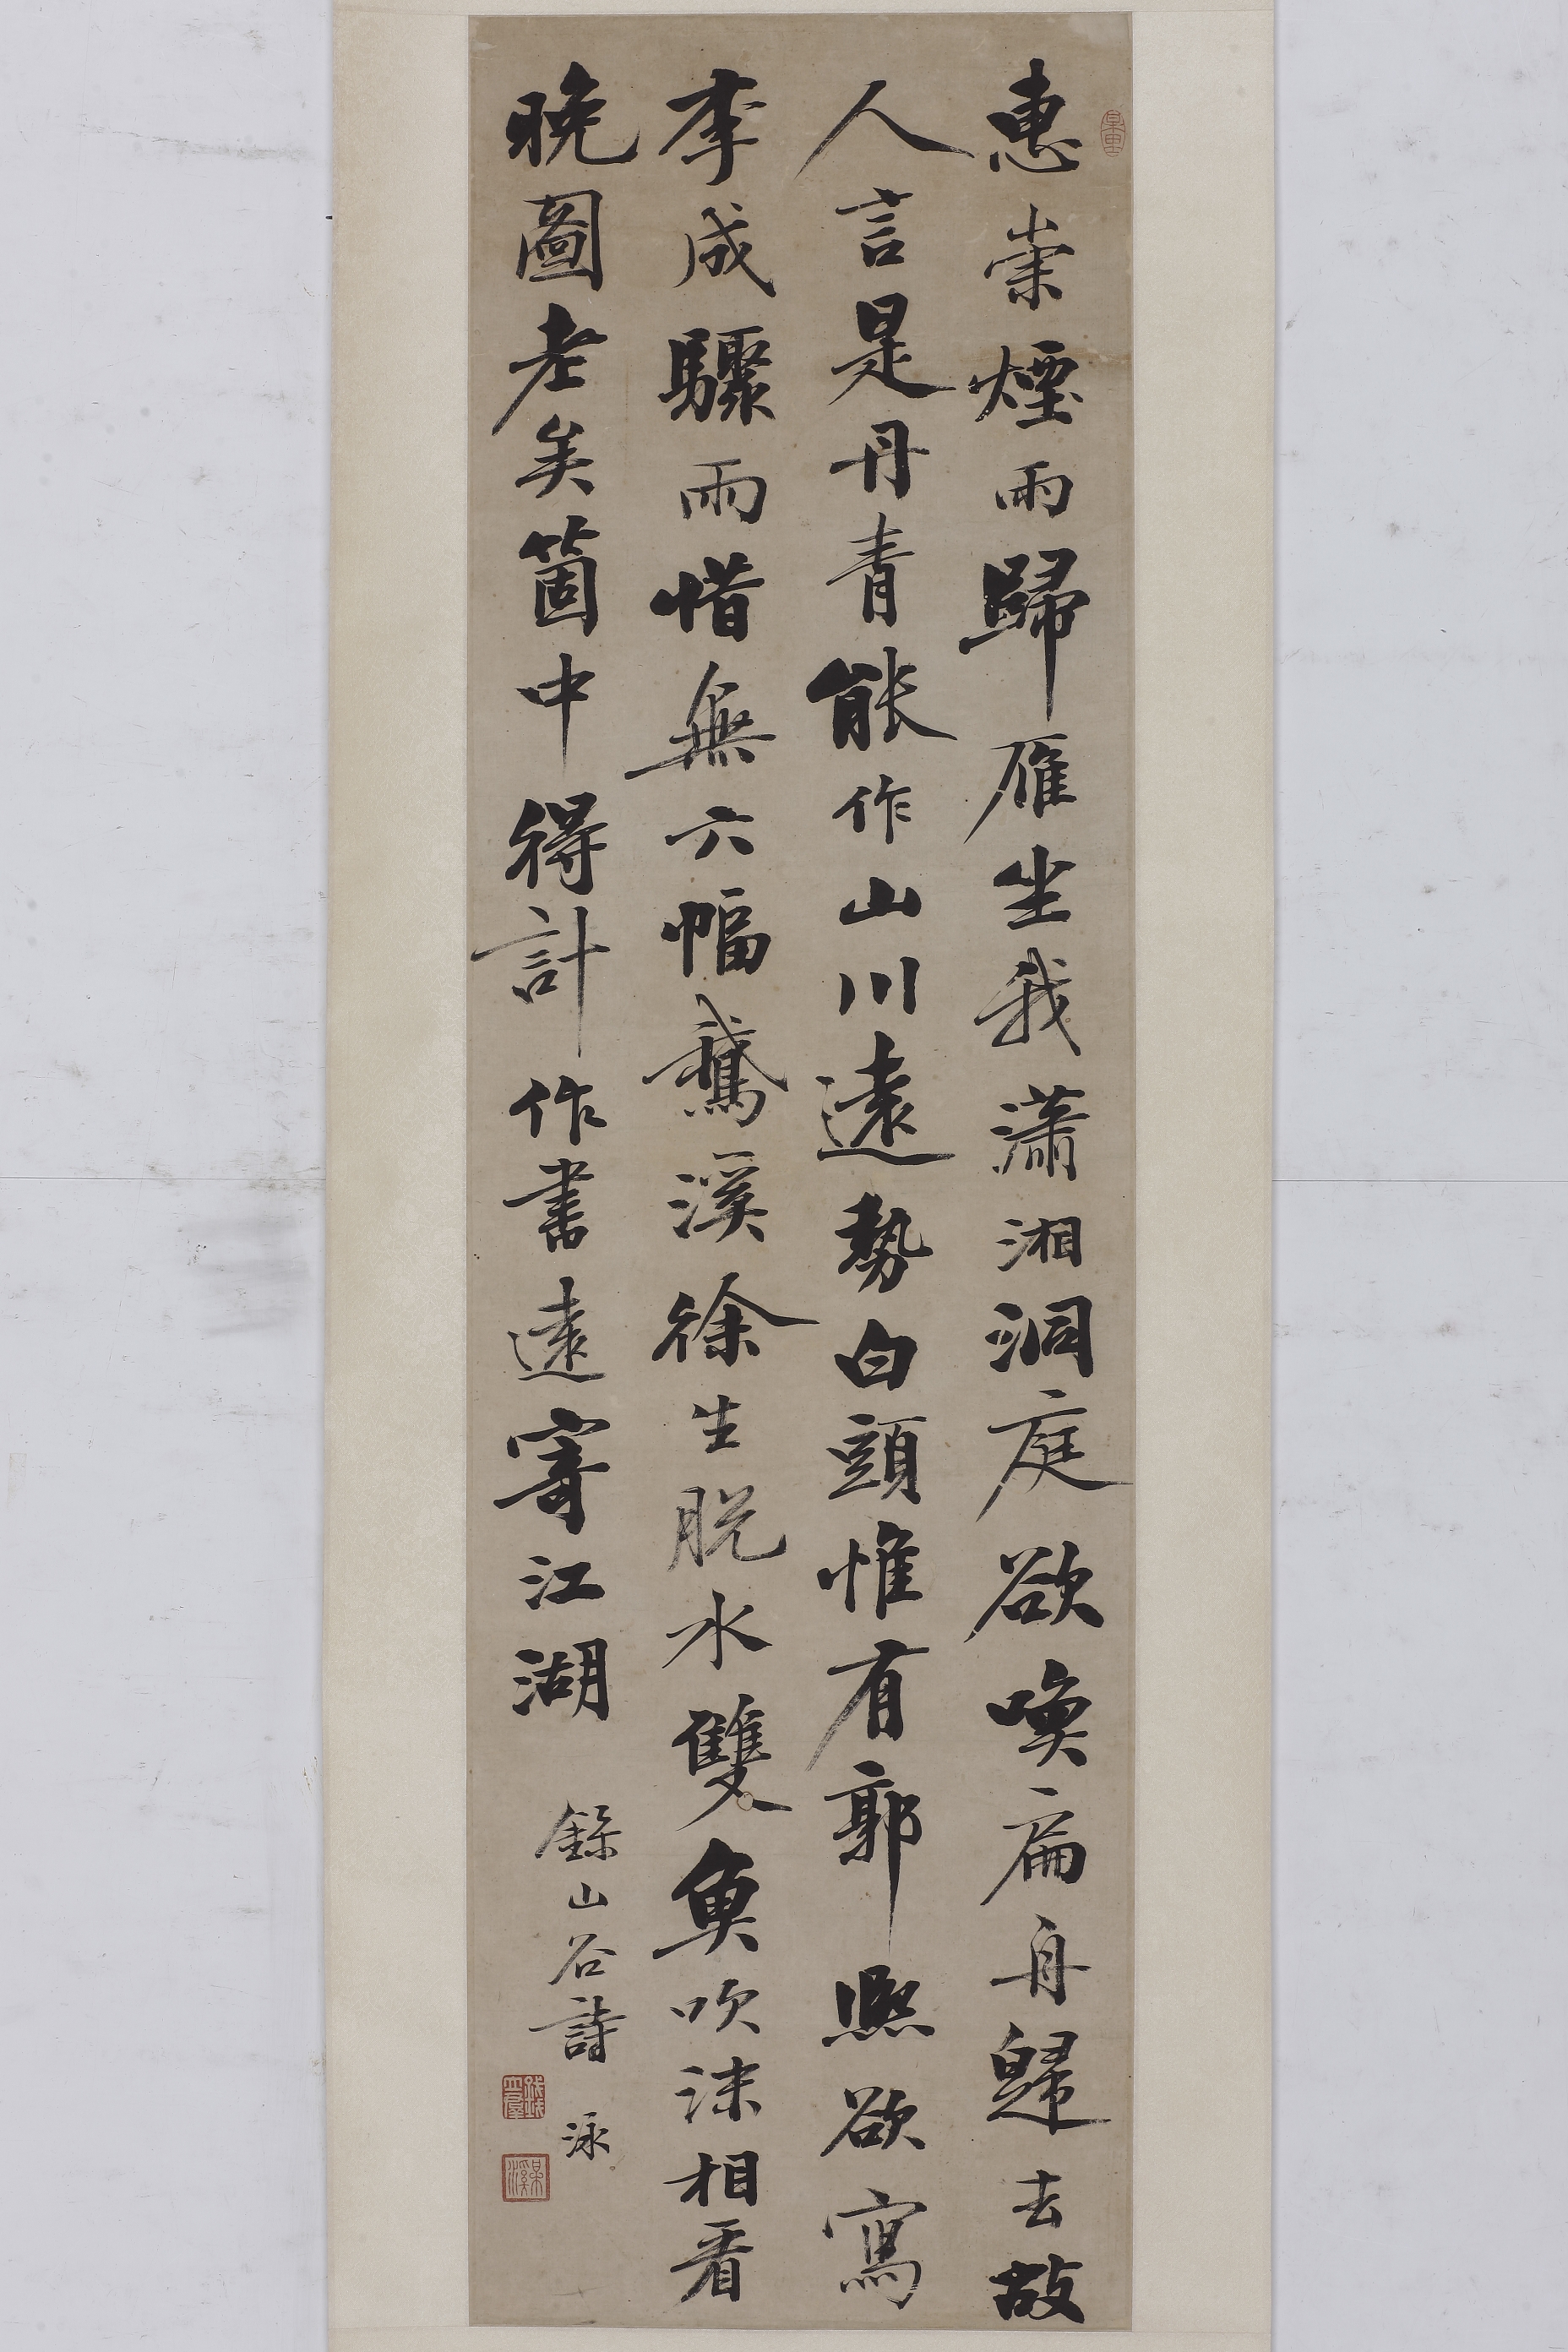 惠崇煙雨歸雁坐我瀟湘洞庭欲喚扁舟歸去故
人言是丹青能作山川遠勢白頭惟有郭熙欲寫
李成驟雨惜無六幅鵞溪徐生脱水雙魚吹沫相看
晚圖老矣箇中得計作書遠寄江湖
錄山谷詩 泳